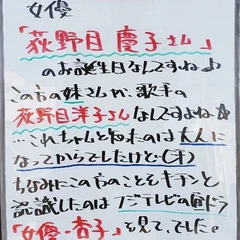 女優
「荻野目 慶子さん」
のお誕生日なんですね♪
この方の妹さんが、歌手の
荻野目洋子さんなんですよね☆
…これちゃんと知ったのは大人に
なってからでしたけど(汗)
ちなみにこの方のことをキチンと
認識したのはフジテレビの昼ドラ
「女優・杏子」を見て、でした。